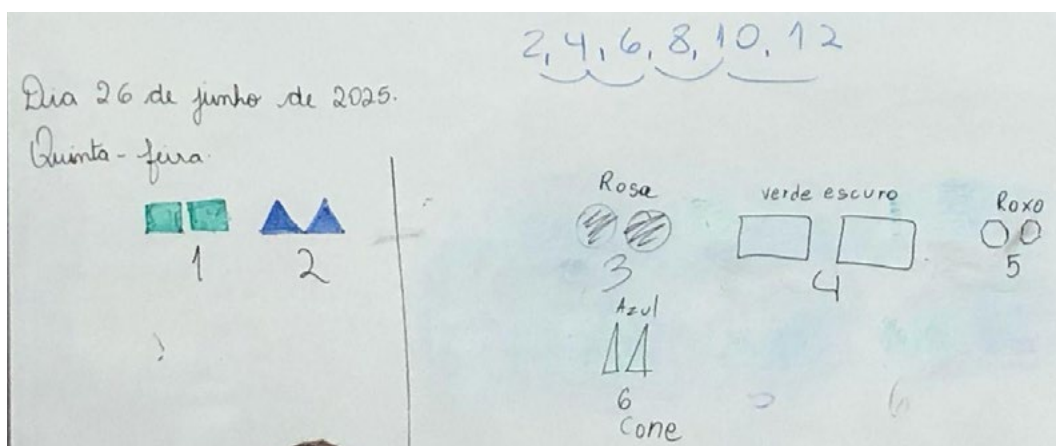 2, 4, 6, 8, 10, 12
Dia 26 de junho de 2025.
Quinta-feira.
1 2
Rosa verde escuro Roxo
3 4 5
Azul
6
Cone